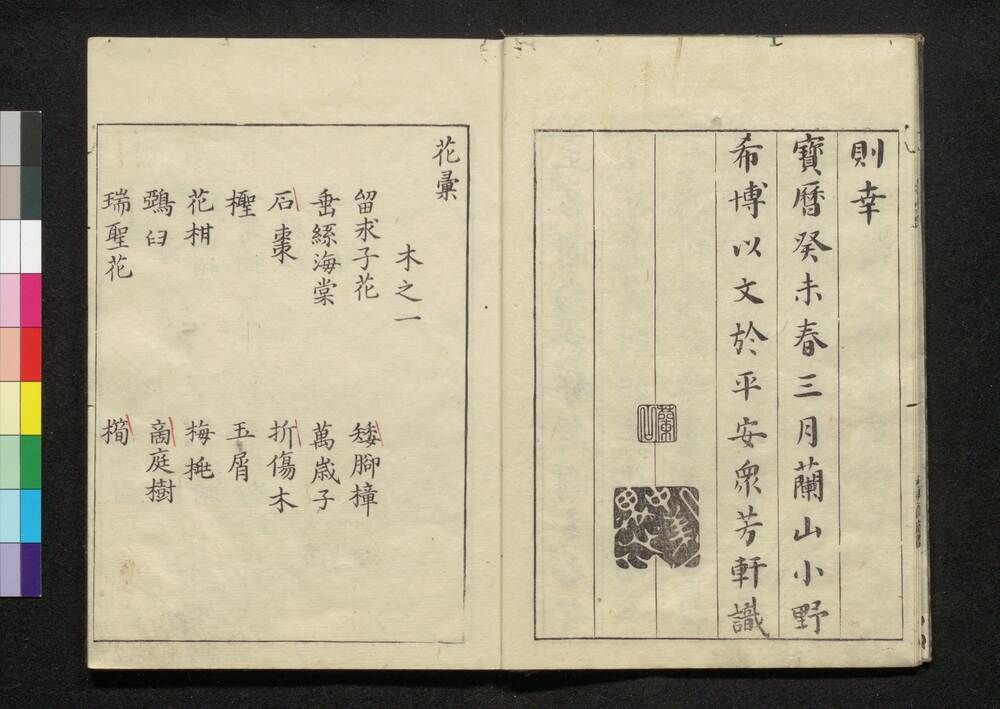 則幸
寶曆癸未春三月蘭山小野
希博以文於平安衆芳軒識
蘭山
花彙
木之一
留求子花 矮腳樟
垂絲海棠 萬歲子
石棗 折傷木
檉 玉屑
花柑 梅桃
鵶臼 商庭樹
瑞聖花